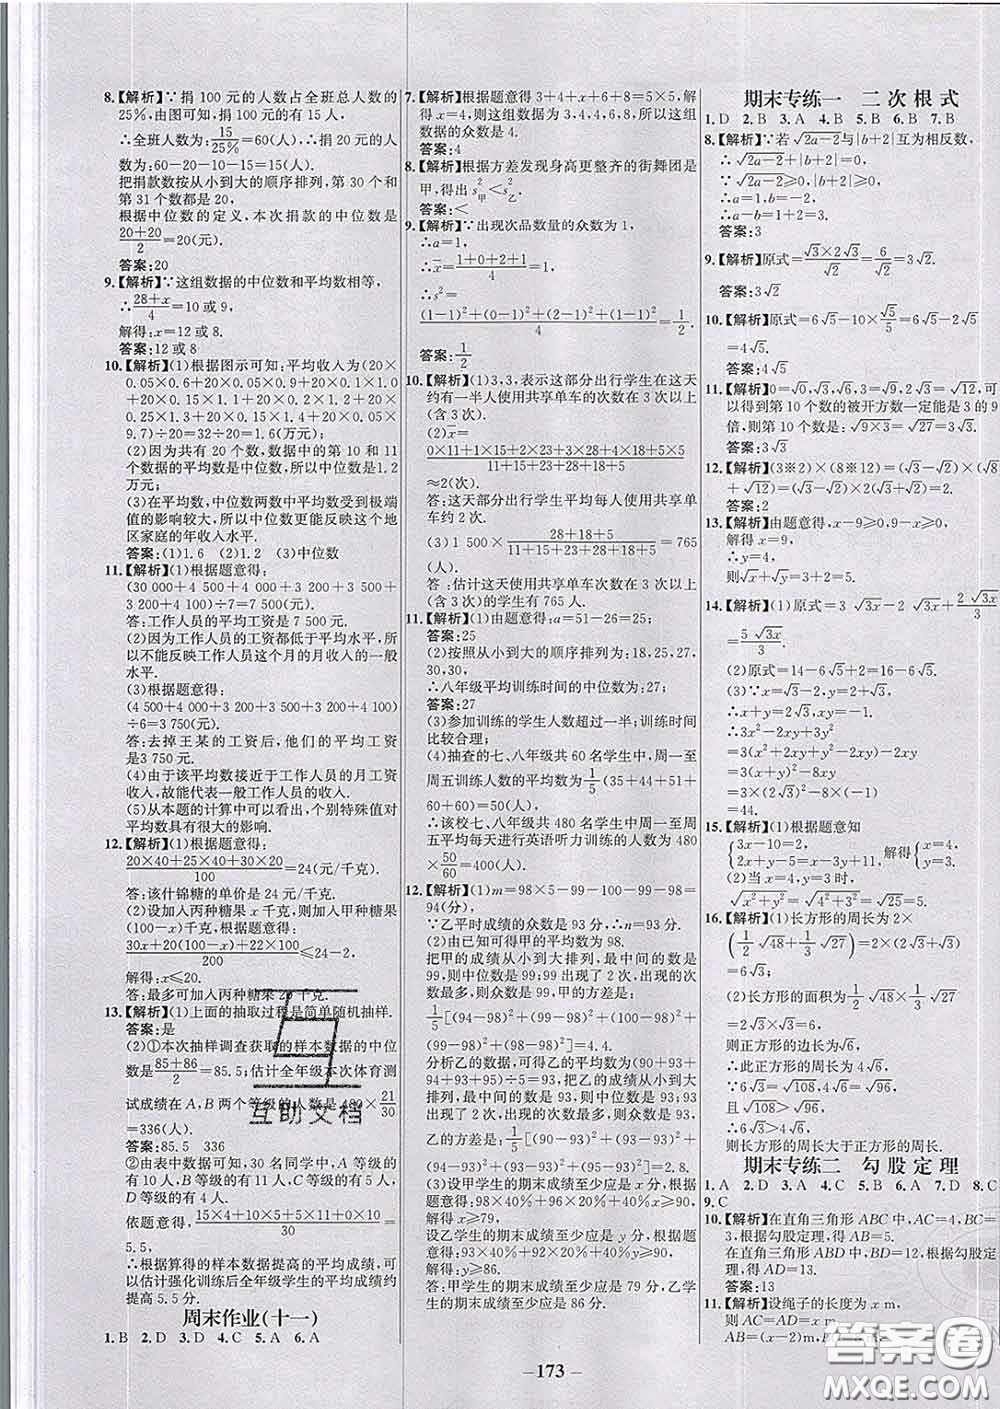 8.【解析】∵捐100元的人数占全班总人数的
25%,由图可知,捐100元的有15人,
∴全班人数为:15/25%=60(人),∴捐20元的
人数为:60-20-10-15=15(人).
把捐款数按从小到大的顺序排列,第30个和
第31个数都是20,
根据中位数的定义,本次捐款的中位数是
(20+20)/2=20(元).
答案:20
9.【解析】∵这组数据的中位数和平均数相等,
∴(28+x)/4=10或9,
解得:x=12或8.
答案:12或8
10.【解析】(1)根据图示可知:平均收入为(20×
0.05×0.6+20×0.05×0.9+20×0.1×1.0
(2)因为共有20个数,数据中的第10和11
个数据的平均数是中位数,所以中位数是1.2
万元;
(3)在平均数,中位数两数中平均数受到极端
值的影响较大,所以中位数更能反映这个地
区家庭的年收入水平.
答案:(1)1.6 (2)1.2 (3)中位数
11.【解析】(1)根据题意得:
(30 000+4 500+3 500+3 200+3 500+
答:工作人员的平均工资是7 500元.
(2)因为工作人员的工资都低于平均水平,所
以不能反映工作人员这个月的月收入的一般
水平.
(3)根据题意得:
÷6=3 750(元).
答:去掉王某的工资后,他们的平均工资
是3 750元.
(4)由于该平均数接近于工作人员的月工资
收入,故能代表一般工作人员的收入.
(5)从本题的计算中可以看出,个别特殊值对
平均数具有很大的影响.
12.【解析】(1)根据题意得:
(20×40+25×40+30×20)/100=24(元/千克).
答:该什锦糖的单价是24元/千克.
(2)设加入丙种糖果x千克,则加入甲种糖果
(100-x)千克,根据题意得:
[30x+20(100-x)+22×100]/200≤24-2,
解得:x≤20.
答:最多可加入丙种糖果20千克.
13.【解析】(1)上面的抽取过程是简单随机抽样.
答案:是
(2)①本次抽样调查获取的样本数据的中位
数是(85+86)/2=85.5;估计全年级本次体育测
试成绩在A,B两个等级的人数是480×21/30
=336(人).
答案:85.5 336
②由表中数据可知,30名同学中,A等级的
有10人,B等级的有11人,C等级的有5人,
D等级的有4人.
依题意得,(15×4+10×5+5×11+0×10)/30=
5.5,
∴根据算得的样本数据提高的平均成绩,可
以估计强化训练后全年级学生的平均成绩约
提高5.5分.
周末作业(十一)
1.B 2.D 3.D 4.C 5.A 6.A
7.【解析】根据题意得3+4+x+6+8=5×5,解
得x=4,则这组数据为3,4,4,6,8,所以这组
数据的众数是4.
答案:4
8.【解析】根据方差发现身高更整齐的街舞团是
甲,得出s²甲<s²乙.
答案:<
9.【解析】∵出现次品数量的众数为1,
∴a=1,
∴x̄=(1+0+2+1)/4=1,
∴s²=
[(1-1)²+(0-1)²+(2-1)²+(1-1)²]/4=1/2.
答案:1/2
10.【解析】(1)3,3,表示这部分出行学生在这天
约有一半人使用共享单车的次数在3次以上
(含3次).
(2)x̄=
(0×11+1×15+2×23+3×28+4×18+5×5)/(11+15+23+28+18+5)
≈2(次).
答:这天部分出行学生平均每人使用共享单
车约2次.
(3)1 500×(28+18+5)/(11+15+23+28+18+5)=765
(人).
答:估计这天使用共享单车次数在3次以上
(含3次)的学生有765人.
11.【解析】(1)由题意得:a=51-26=25;
答案:25
(2)按照从小到大的顺序排列为:18,25,27,
30,30,
∴八年级平均训练时间的中位数为:27;
答案:27
(3)参加训练的学生人数超过一半;训练时间
比较合理;
(4)抽查的七、八年级共60名学生中,周一至
周五训练人数的平均数为1/5(35+44+51+
60+60)=50(人),
∴该校七、八年级共480名学生中周一至周
五平均每天进行英语听力训练的人数为480
×50/60=400(人).
12.【解析】(1)m=98×5-99-100-99-98=
94(分),
∵乙平时成绩的众数是93分,∴n=93分.
(2)由已知可得甲的平均数为98.
把甲的成绩从小到大排列,最中间的数是
99,则中位数是99;99出现了2次,出现的次
数最多,则众数是99,甲的方差是:
1/5[(94-98)²+(99-98)²+(100-98)²+
(99-98)²+(98-98)²]=4.4.
分析乙的数据,可得乙的平均数为(90+93+
94+93+95)÷5=93.把乙的成绩从小到大
排列,最中间的数是93,则中位数是93;93
出现了2次,出现的次数最多,则众数是93,
乙的方差是:1/5[(90-93)²+(93-93)²+
(94-93)²+(93-93)²+(95-93)²]=2.8.
(3)设甲学生的期末成绩至少应是x分,根据
题意得:98×40%+96×20%+40%x≥90,
解得x≥79,
设乙学生的期末成绩至少应是y分,根据题
解得:y≥86.
答:甲学生的期末成绩至少应是79分,乙学
生的期末成绩至少应是86分.
期末专练一 二次根式
1.D 2.B 3.A 4.B 5.B 6.B 7.B
8.【解析】∵若√(2a-2)与|b+2|互为相反数,
∴√(2a-2)+|b+2|=0,
∵√(2a-2)≥0,|b+2|≥0,
∴a=1,b=-2,
∴a-b=1+2=3.
答案:3
9.【解析】原式=(√3×2√3)/√2=6/√2=3√2.
答案:3√2
10.【解析】原式=6√5-10×√5/5=6√5-2√5
=4√5.
答案:4√5
11.【解析】0=√0,√3,√6,3=√9,2√3=√12,可
以得到第10个数的被开方数一定能是3的9
倍,则第10个数是:√(9×3)=√27=3√3.
答案:3√3
12.【解析】(3※2)×(8※12)=(√3-√2)×(√8
+√12)=(√3-√2)×2(√3+√2)=2.
答案:2
13.【解析】由题意得,x-9≥0,9-x≥0,
解得x=9,
∴y=4,
则√x+√y=3+2=5.
14.【解析】(1)原式=3√3x-2√3x+2√3x/3
=5√3x/3.
(2)原式=14-6√5+√5-1=13-5√5.
(3)∵x=√3-2,y=√3+2,
∴x+y=2√3,xy=-1.
∴3x²-2xy+3y²
=3(x²+2xy+y²)-8xy
=3(x+y)²-8xy
=3×(2√3)²-8×(-1)
=44.
15.【解析】(1)根据题意知
{3x-10=2, 2x+y-5=x-3y+11, 解得{x=4, y=3.
(2)当x=4,y=3时,
√(x²+y²)=√(4²+3²)=√25=5.
16.【解析】(1)长方形的周长为2×
(1/2√48+1/3√27)=2×(2√3+√3)
=6√3.
(2)长方形的面积为1/2√48×1/3√27
=2√3×√3=6,
则正方形的边长为√6,
∴此正方形的周长为4√6,
∵6√3=√108,4√6=√96,
且√108>√96,
∴6√3>4√6,
则长方形的周长大于正方形的周长.
期末专练二 勾股定理
1.A 2.D 3.A 4.C 5.B 6.A 7.D 8.C
9.C
10.【解析】在直角三角形ABC中,AC=4,BC=
3,根据勾股定理,得AB=5.
在直角三角形ABD中,BD=12,根据勾股定
理,得AD=13.
答案:13
11.【解析】设绳子的长度为x m,
则AC=AD=x m,
AB=(x-2)m,
互助文档
答案圈
MXQE.COM
- 173 -